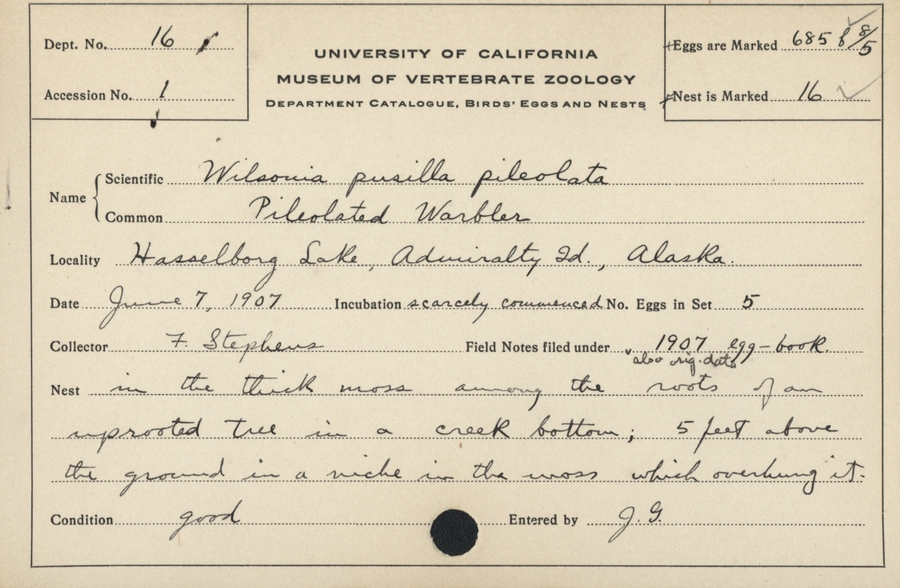 Dept. No. 16
Accession No. 1
UNIVERSITY OF CALIFORNIA
MUSEUM OF VERTEBRATE ZOOLOGY
DEPARTMENT CATALOGUE, BIRDS' EGGS AND NESTS
Eggs are Marked 685 8/5
Nest is Marked 16
Name Scientific Wilsonia pusilla pileolata
Common Pileolated Warbler
Locality Hasselborg Lake, Admiralty Id., Alaska.
Date June 7, 1907 Incubation scarcely commenced No. Eggs in Set 5
Collector F. Stephens Field Notes filed under 1907 egg-book.
also orig. data
Nest in the thick moss among the roots of an
uprooted tree in a creek bottom; 5 feet above
the ground in a niche in the moss which overhung it.
Condition good Entered by J. G.